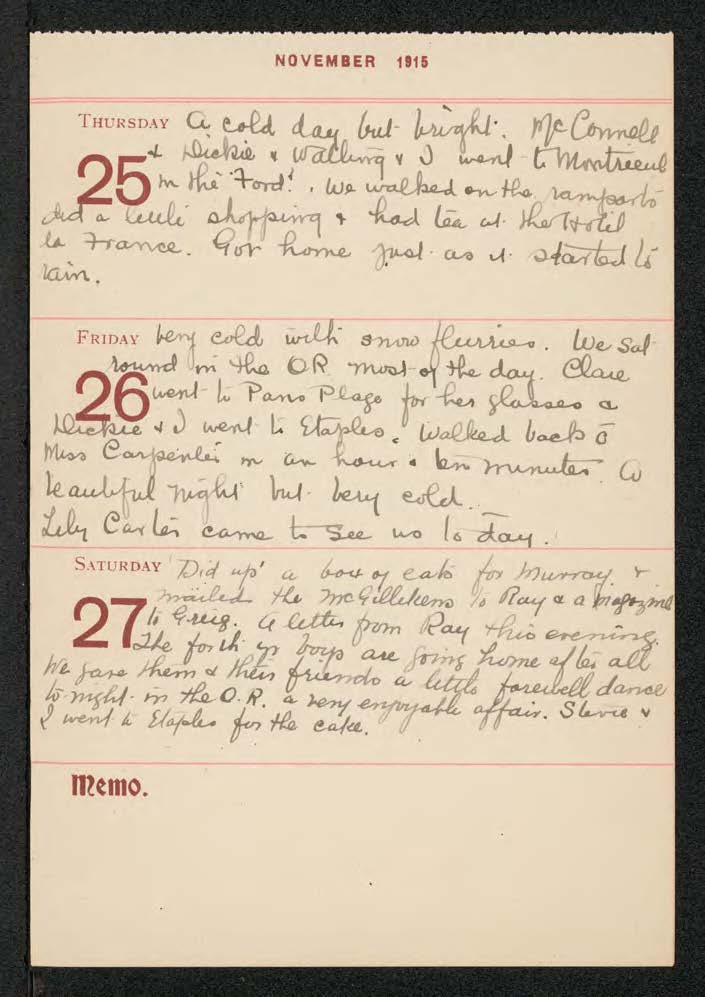 NOVEMBER 1915
THURSDAY A cold day but bright. McConnell
25 & Dickie & Walling & I went to Montrieul
in the "Ford". We walked on the ramparts
did a little shopping & had tea at the Hotel
la France. Got home just as it started to
rain.
FRIDAY Very cold with snow flurries. We sat
round in the OR most of the day. Clare
26 went to Paris Plage for her glasses &
Dickie & I went to Etaples. Walked back c̄
Miss Carpenter in an hour & ten minutes. A
beautiful night but very cold.
Lily Carter came to see us to day.
SATURDAY 'Did up' a box of eats for Murray &
mailed the McGillekens to Ray & a magazine
27 to Greig. A letter from Ray this evening.
The forth yr boys are going home after all
We gave them & their friends a little farewell dance
to-night in the O.R. a very enjoyable affair. Stevie &
I went to Etaples for the cake.
Memo.